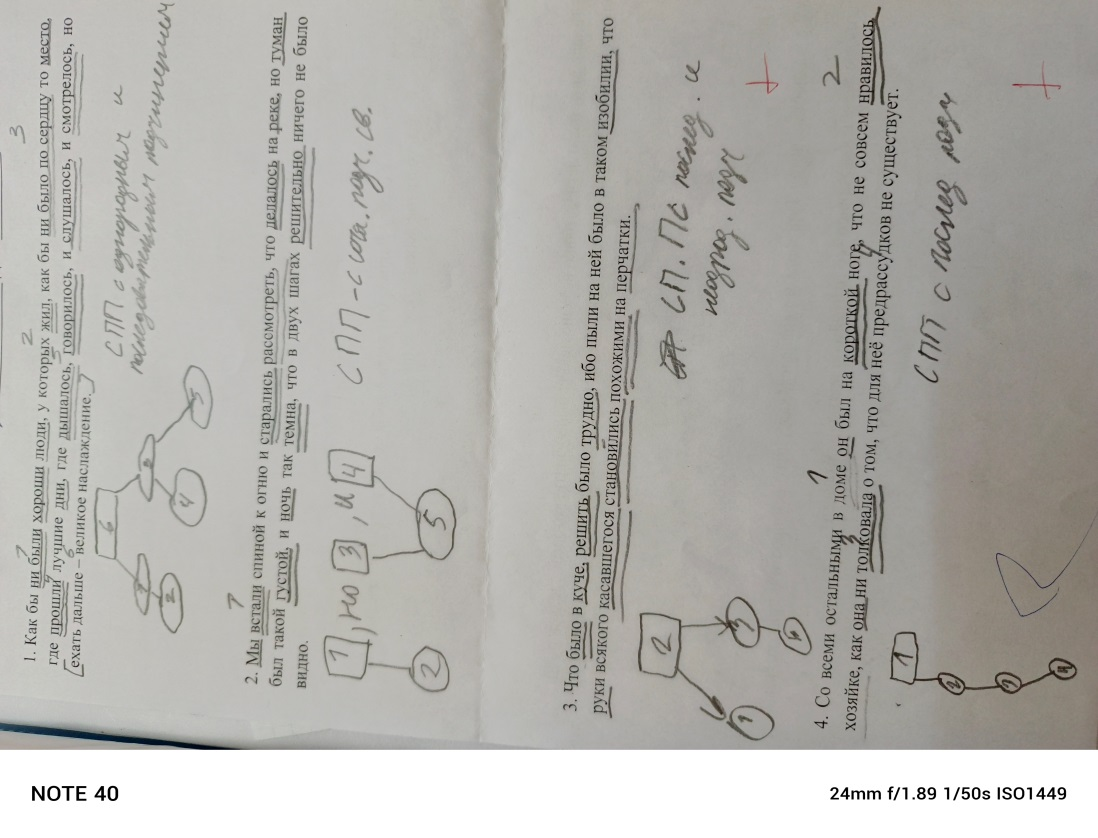 3
2
1
1. Как бы ни были хороши люди, у которых жил, как бы ни было по сердцу то место,
где прошли лучшие дни, где дышалось, говорилось, и слушалось, и смотрелось, но
ехать дальше – великое наслаждение.
СПП с однородным и
последовательным подчинением
6
1
3
2
4
5
2. Мы встали спиной к огню и старались рассмотреть, что делалось на реке, но туман
был такой густой, и ночь так темна, что в двух шагах решительно ничего не было
видно.
1, но 3, и 4
СПП - с соч. подч. св.
2
5
3. Что было в куче, решить было трудно, ибо пыли на ней было в таком изобилии, что
руки всякого касавшегося становились похожими на перчатки.
СП. ПС послед. и
неоднод. подч
+
2
1
3
4
2
1
4. Со всеми остальными в доме он был на короткой ноге, что не совсем нравилось
хозяйке, как она ни толковала о том, что для неё предрассудков не существует.
3
4
1
СПП с послед подч
+
2
3
4
NOTE 40
24mm f/1.89 1/50s ISO1449